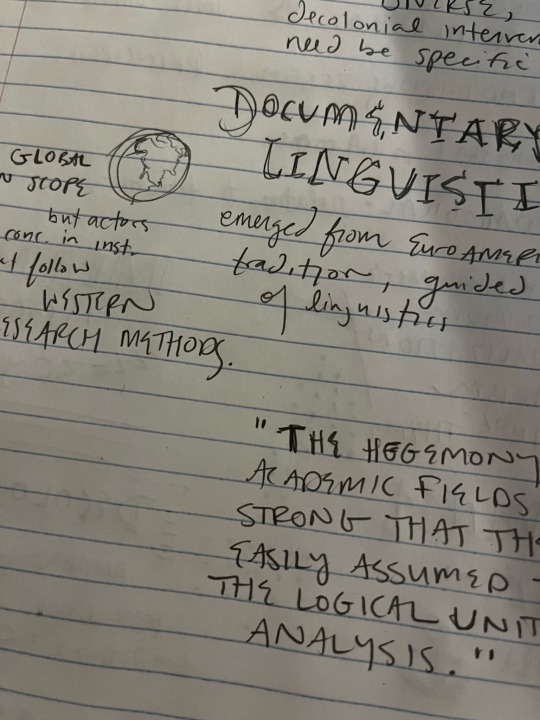 DIVERSE,
decolonial interven
need be specific
DOCUMENTARY
LINGUISTI
GLOBAL
N SCOPE
but actors
conc. in inst.
t follow
WESTERN
ESEARCH METHODS.
emerged from EUROAMERI
tradition, guided
of linguistics
"THE HEGEMONY
ACADEMIC FIELDS
STRONG THAT TH
EASILY ASSUMED
THE LOGICAL UNIT
ANALYSIS."